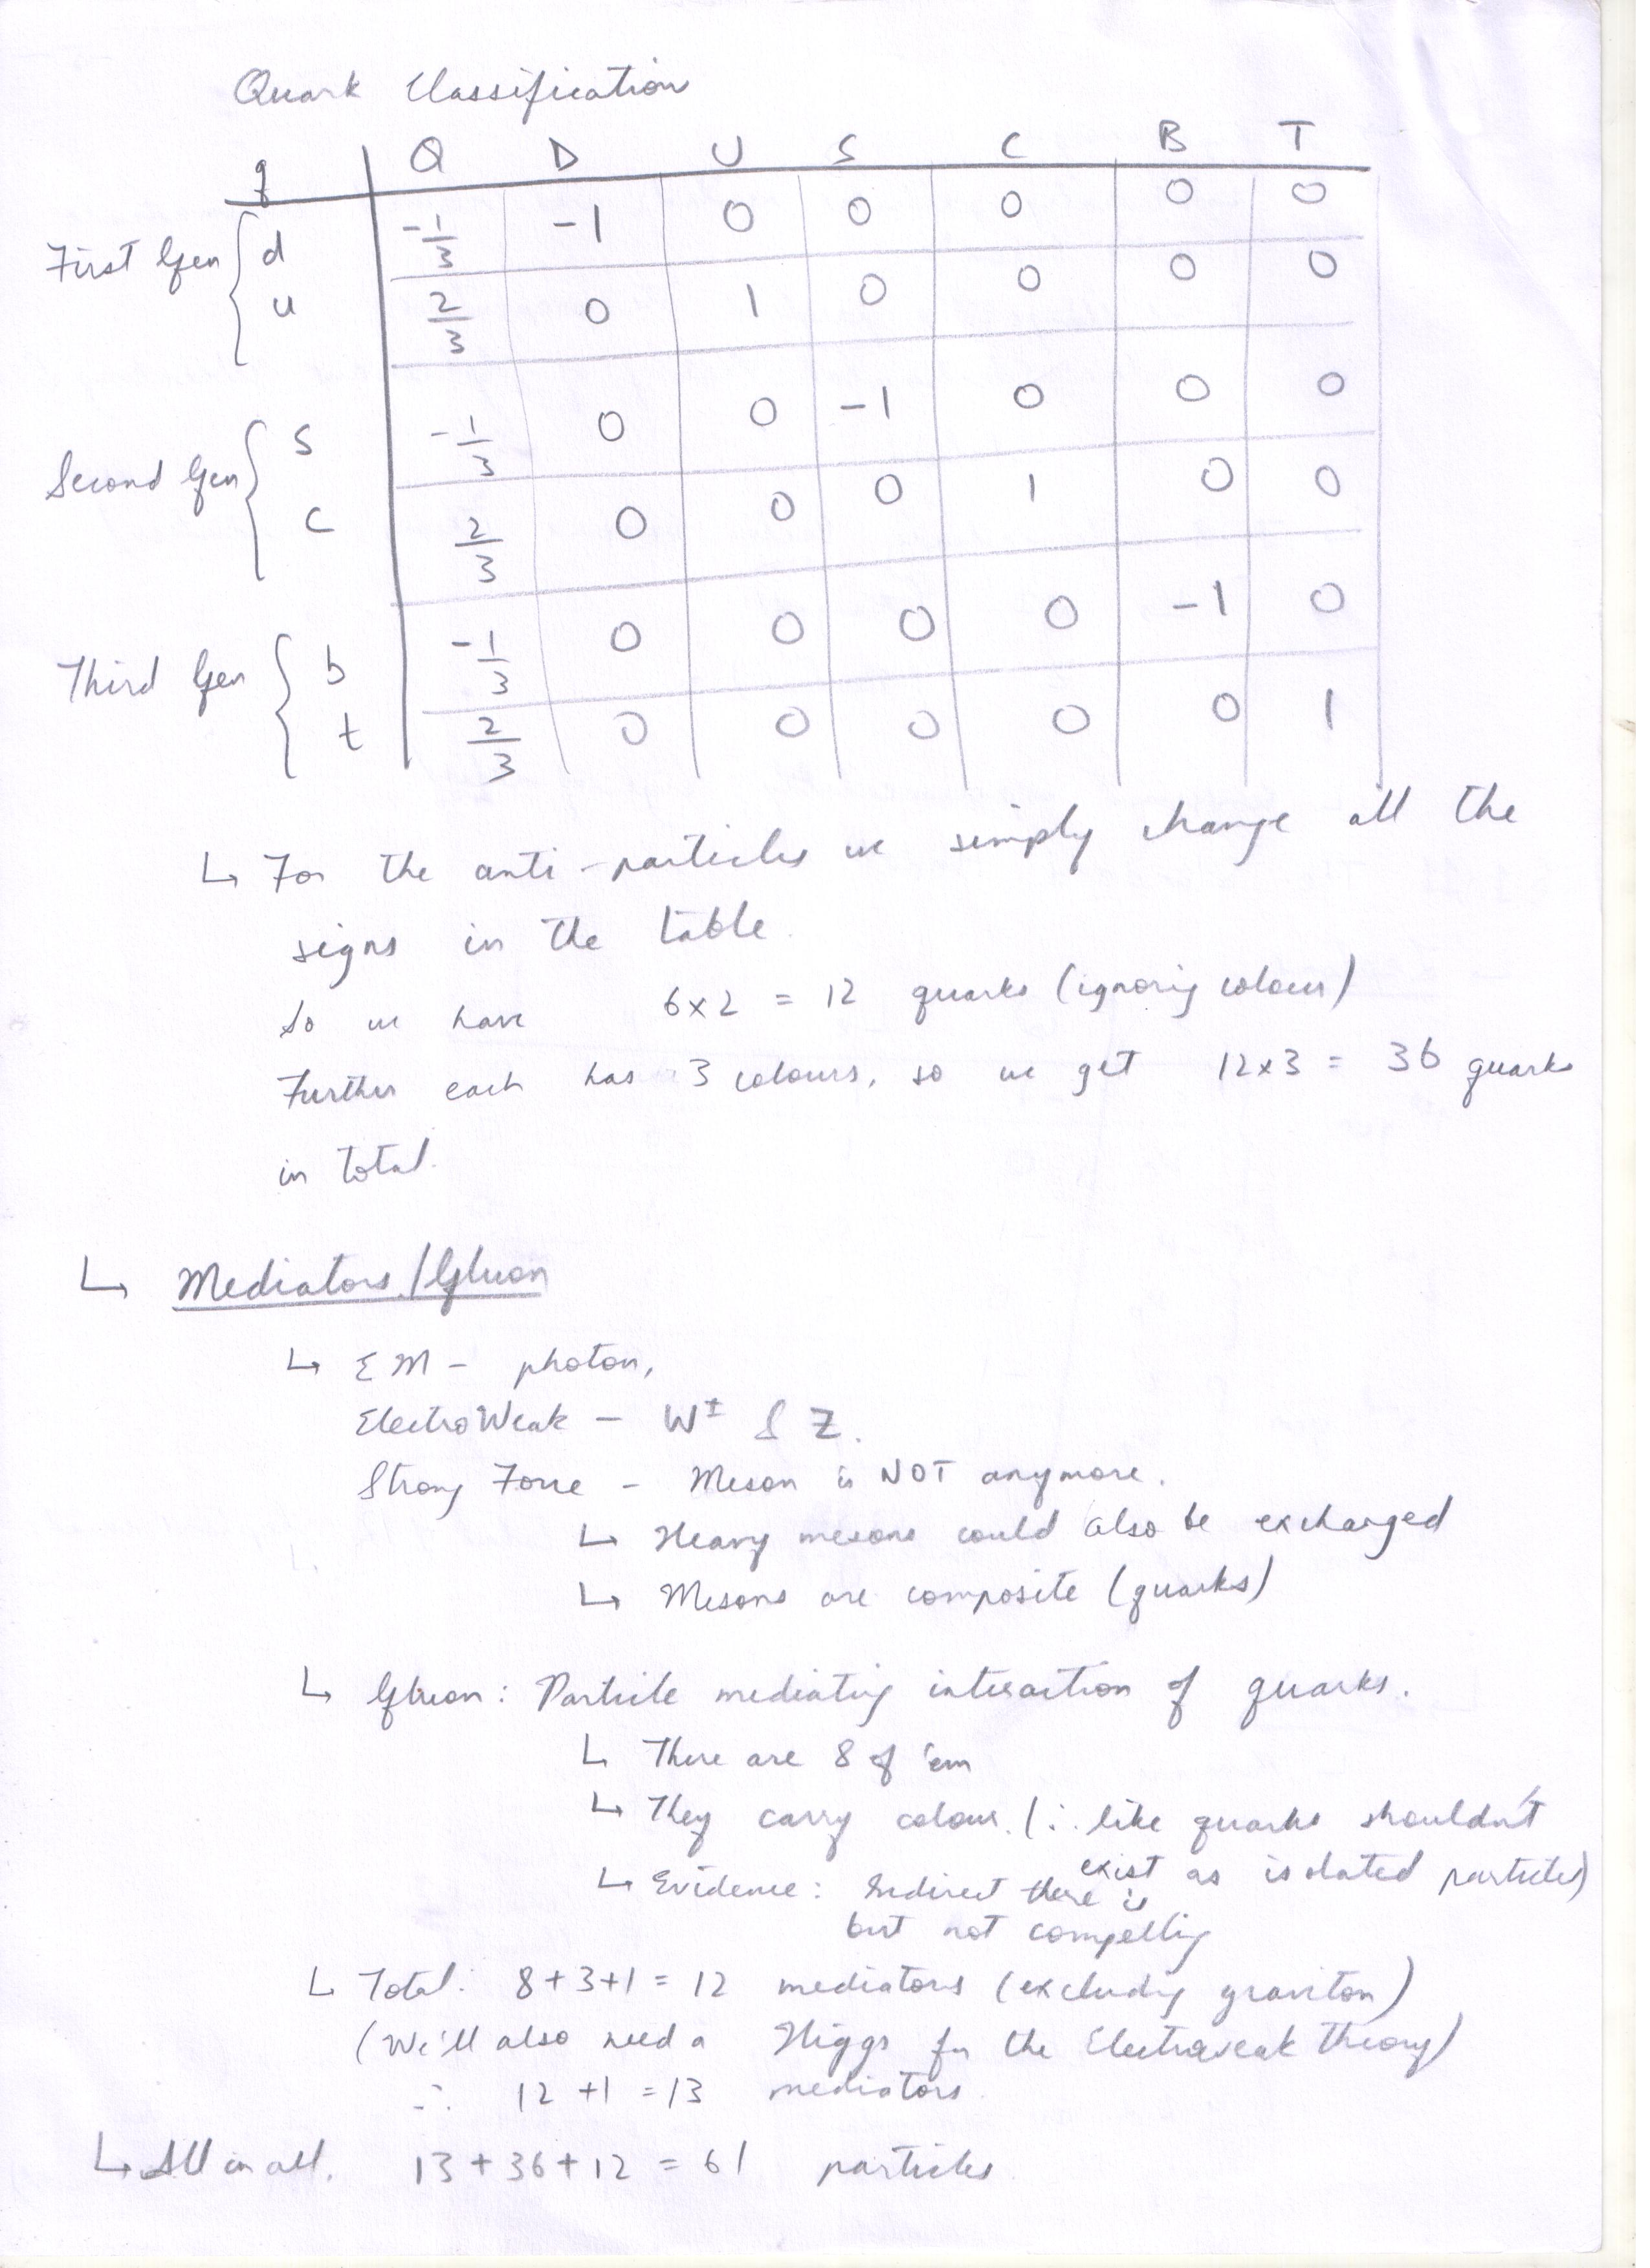 Quark Classification
q Q D U S C B T
First Gen { d -1/3 -1 0 0 0 0 0
u 2/3 0 1 0 0 0 0
Second Gen { s -1/3 0 0 -1 0 0 0
c 2/3 0 0 0 1 0 0
Third Gen { b -1/3 0 0 0 0 -1 0
t 2/3 0 0 0 0 0 1
↳ For the anti-particles we simply change all the
signs in the table.
So we have 6x2 = 12 quarks (ignoring colour)
Further each has 3 colours, so we get 12x3 = 36 quarks
in total.
↳ Mediators/Gluon
↳ EM - photon,
ElectroWeak - W± & Z.
Strong Force - Meson is NOT anymore.
↳ Heavy mesons could also be exchanged
↳ Mesons are composite (quarks)
↳ Gluon: Particle mediating interaction of quarks.
↳ There are 8 of 'em
↳ They carry colour. (∴ like quarks shouldn't
exist as isolated particles)
↳ Evidence: Indirect there is
but not compelling
↳ Total: 8+3+1 = 12 mediators (excluding graviton)
(We'll also need a Higgs for the Electroweak theory)
∴ 12 +1 = 13 mediators.
↳ All in all, 13+36+12 = 61 particles